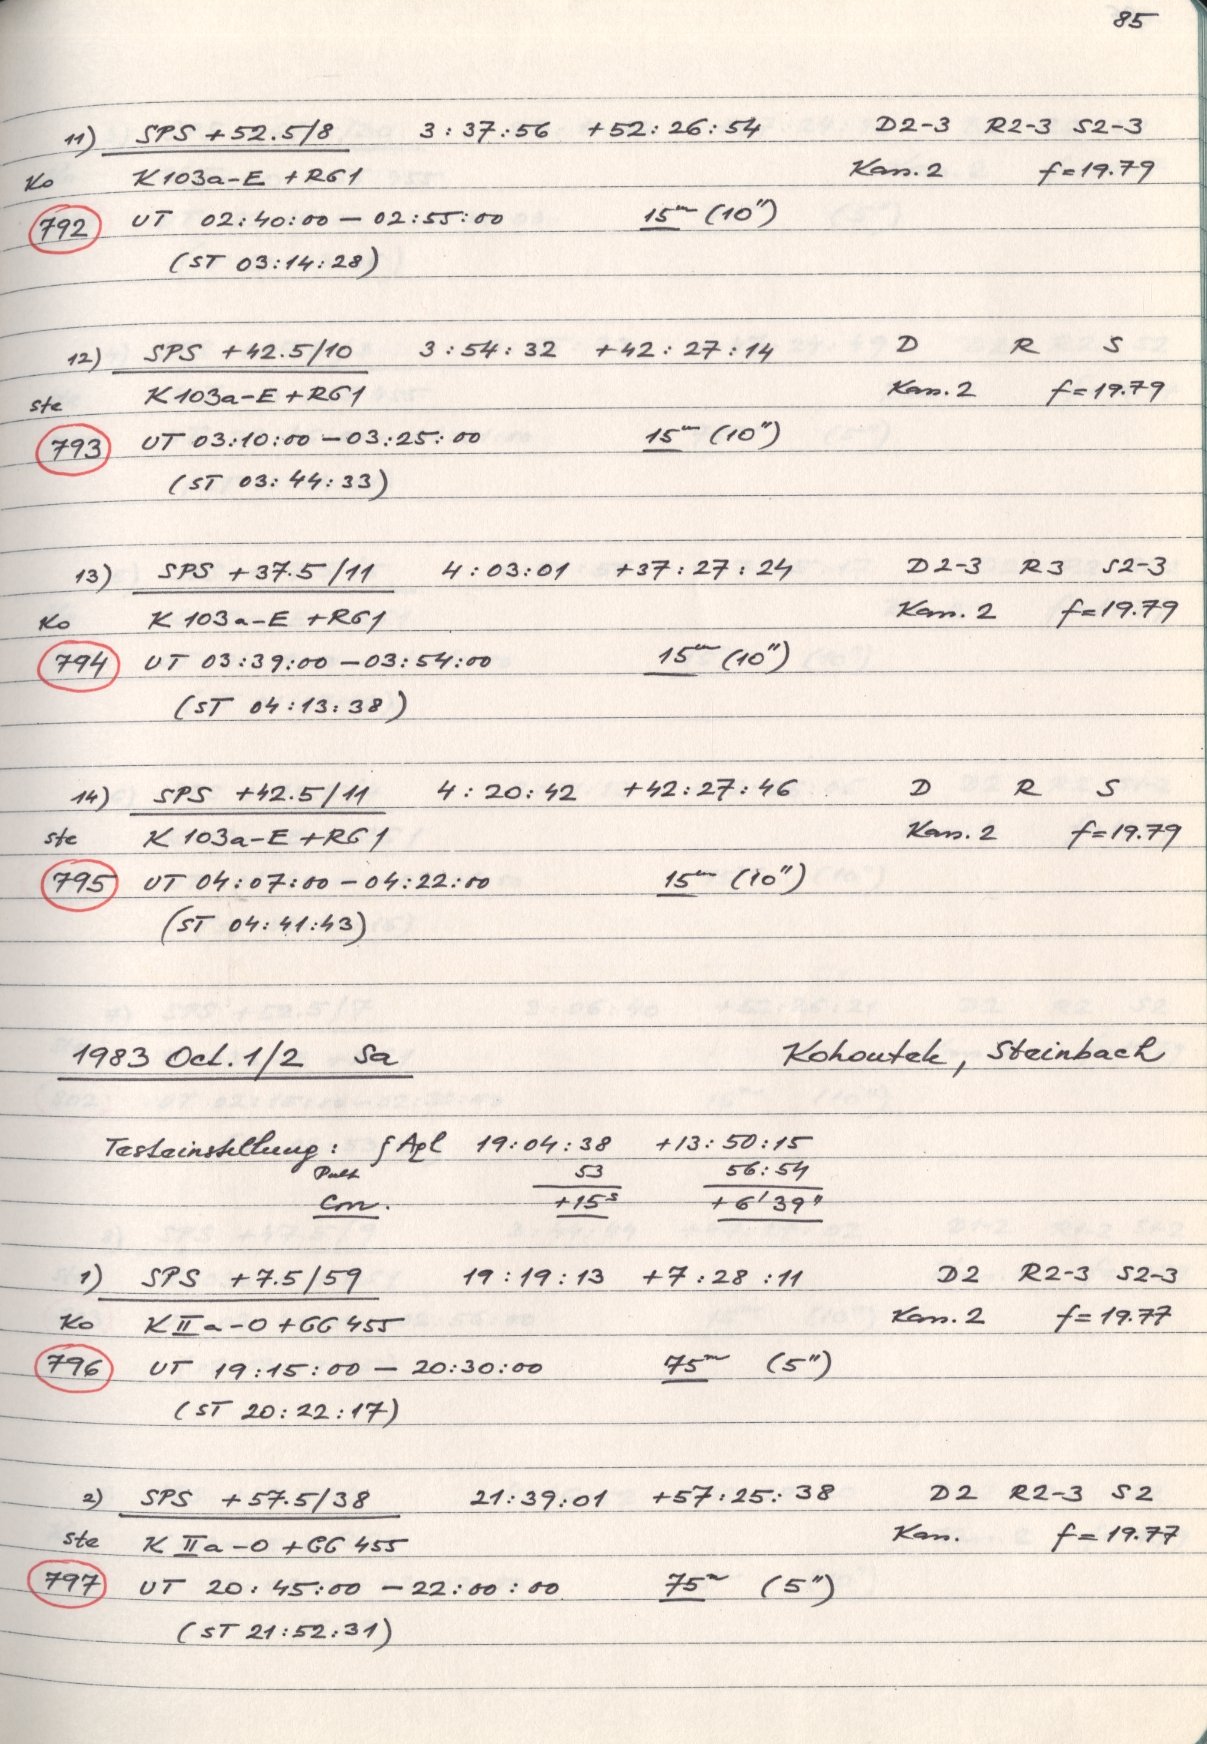 85
11) SPS +52.5/8 3:37:56 +52:26:54 D2-3 R2-3 S2-3
Ko K103a-E+RG1 Kan.2 f=19.79
792 UT 02:40:00 – 02:55:00 15ᵐ (10")
(ST 03:14:28)
12) SPS +42.5/10 3:54:32 +42:27:14 D R S
Ste K103a-E+RG1 Kan.2 f=19.79
793 UT 03:10:00 – 03:25:00 15ᵐ (10")
(ST 03:44:33)
13) SPS +37.5/11 4:03:01 +37:27:24 D2-3 R3 S2-3
Ko K103a-E+RG1 Kan.2 f=19.79
794 UT 03:39:00 – 03:54:00 15ᵐ (10")
(ST 04:13:38)
14) SPS +42.5/11 4:20:42 +42:27:46 D R S
Ste K103a-E+RG1 Kan.2 f=19.79
795 UT 04:07:00 – 04:22:00 15ᵐ (10")
(ST 04:41:43)
1983 Oct. 1/2 Sa Kohoutek, Steinbach
Testeinstellung: ζ Aql 19:04:38 +13:50:15
Pult 53 56:54
Corr. +15ˢ +6'39"
1) SPS +7.5/59 19:19:13 +7:28:11 D2 R2-3 S2-3
Ko KIIa-O+GG455 Kan.2 f=19.77
796 UT 19:15:00 – 20:30:00 75ᵐ (5")
(ST 20:22:17)
2) SPS +57.5/38 21:39:01 +57:25:38 D2 R2-3 S2
Ste KIIa-O+GG455 Kan. f=19.77
797 UT 20:45:00 – 22:00:00 75ᵐ (5")
(ST 21:52:31)